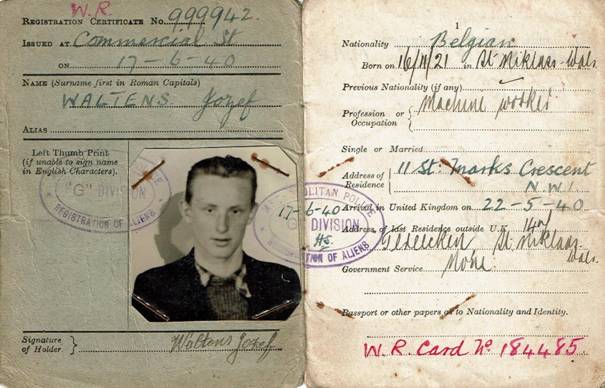 W.R.
REGISTRATION CERTIFICATE No. 999942.
ISSUED AT Commercial St
ON 17-6-40
NAME (Surname first in Roman Capitals)
WALTENS Jozef
ALIAS
Left Thumb Print
(if unable to sign name
in English Characters).
"G" DIVISION
REGISTRATION OF ALIENS
Signature
of Holder
Waltens Jozef
1
Nationality Belgian
Born on 16/11/21 in St Niklaas-Wals
Previous Nationality (if any)
Profession or
Occupation
Machine worker
Single or Married
Address of
Residence
11 St. Marks Crescent
N.W.1.
Arrived in United Kingdom on 22-5-40
Address of last Residence outside U.K.
St Niklaas-
Wals.
Government Service None.
Passport or other papers as to Nationality and Identity.
W.R. Card No 184485.
METROPOLITAN POLICE
17-6-40
"G" DIVISION
REGISTRATION OF ALIENS